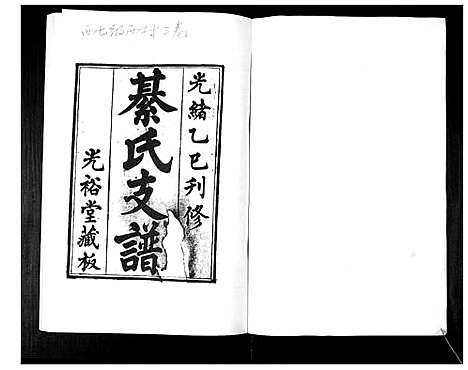 光緒乙巳刋修
綦氏支譜
光裕堂藏板